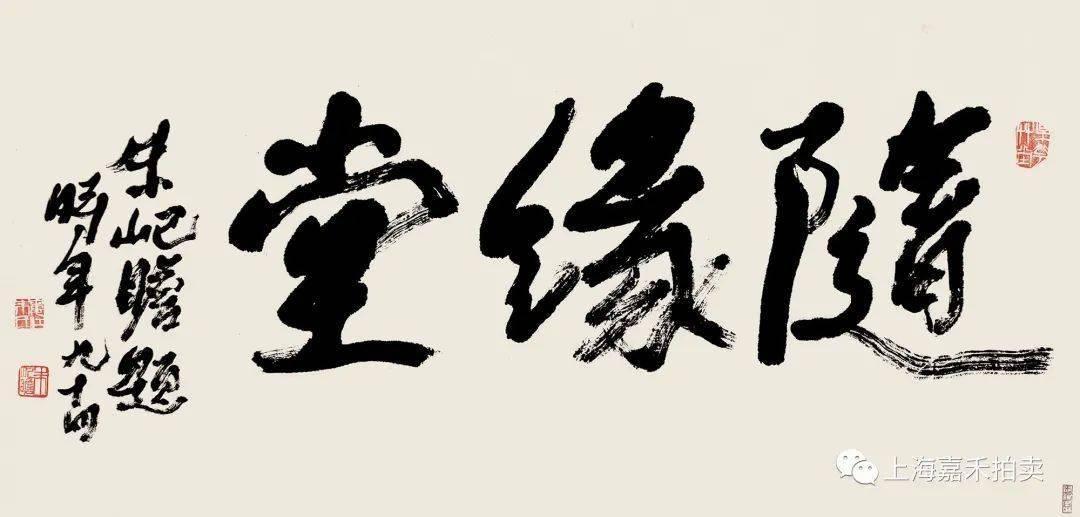 隨緣堂
朱屺瞻題
時年九十四
上海嘉禾拍卖